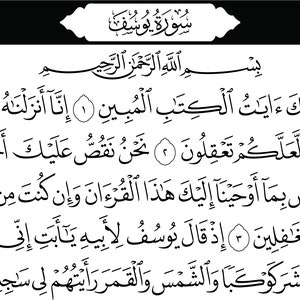 سُورَةُ يُوسُفَ
بِسْمِ ٱللَّهِ ٱلرَّحْمَٰنِ ٱلرَّحِيمِ
ءَايَٰتُ ٱلْكِتَٰبِ ٱلْمُبِينِ ١ إِنَّآ أَنزَلْنَٰهُ
لَّعَلَّكُمْ تَعْقِلُونَ ٢ نَحْنُ نَقُصُّ عَلَيْكَ
بِمَآ أَوْحَيْنَآ إِلَيْكَ هَٰذَا ٱلْقُرْءَانَ وَإِن كُنتَ مِن
ٱلْغَٰفِلِينَ ٣ إِذْ قَالَ يُوسُفُ لِأَبِيهِ يَٰٓأَبَتِ إِنِّى
كَوْكَبًا وَٱلشَّمْسَ وَٱلْقَمَرَ رَأَيْتُهُمْ لِى